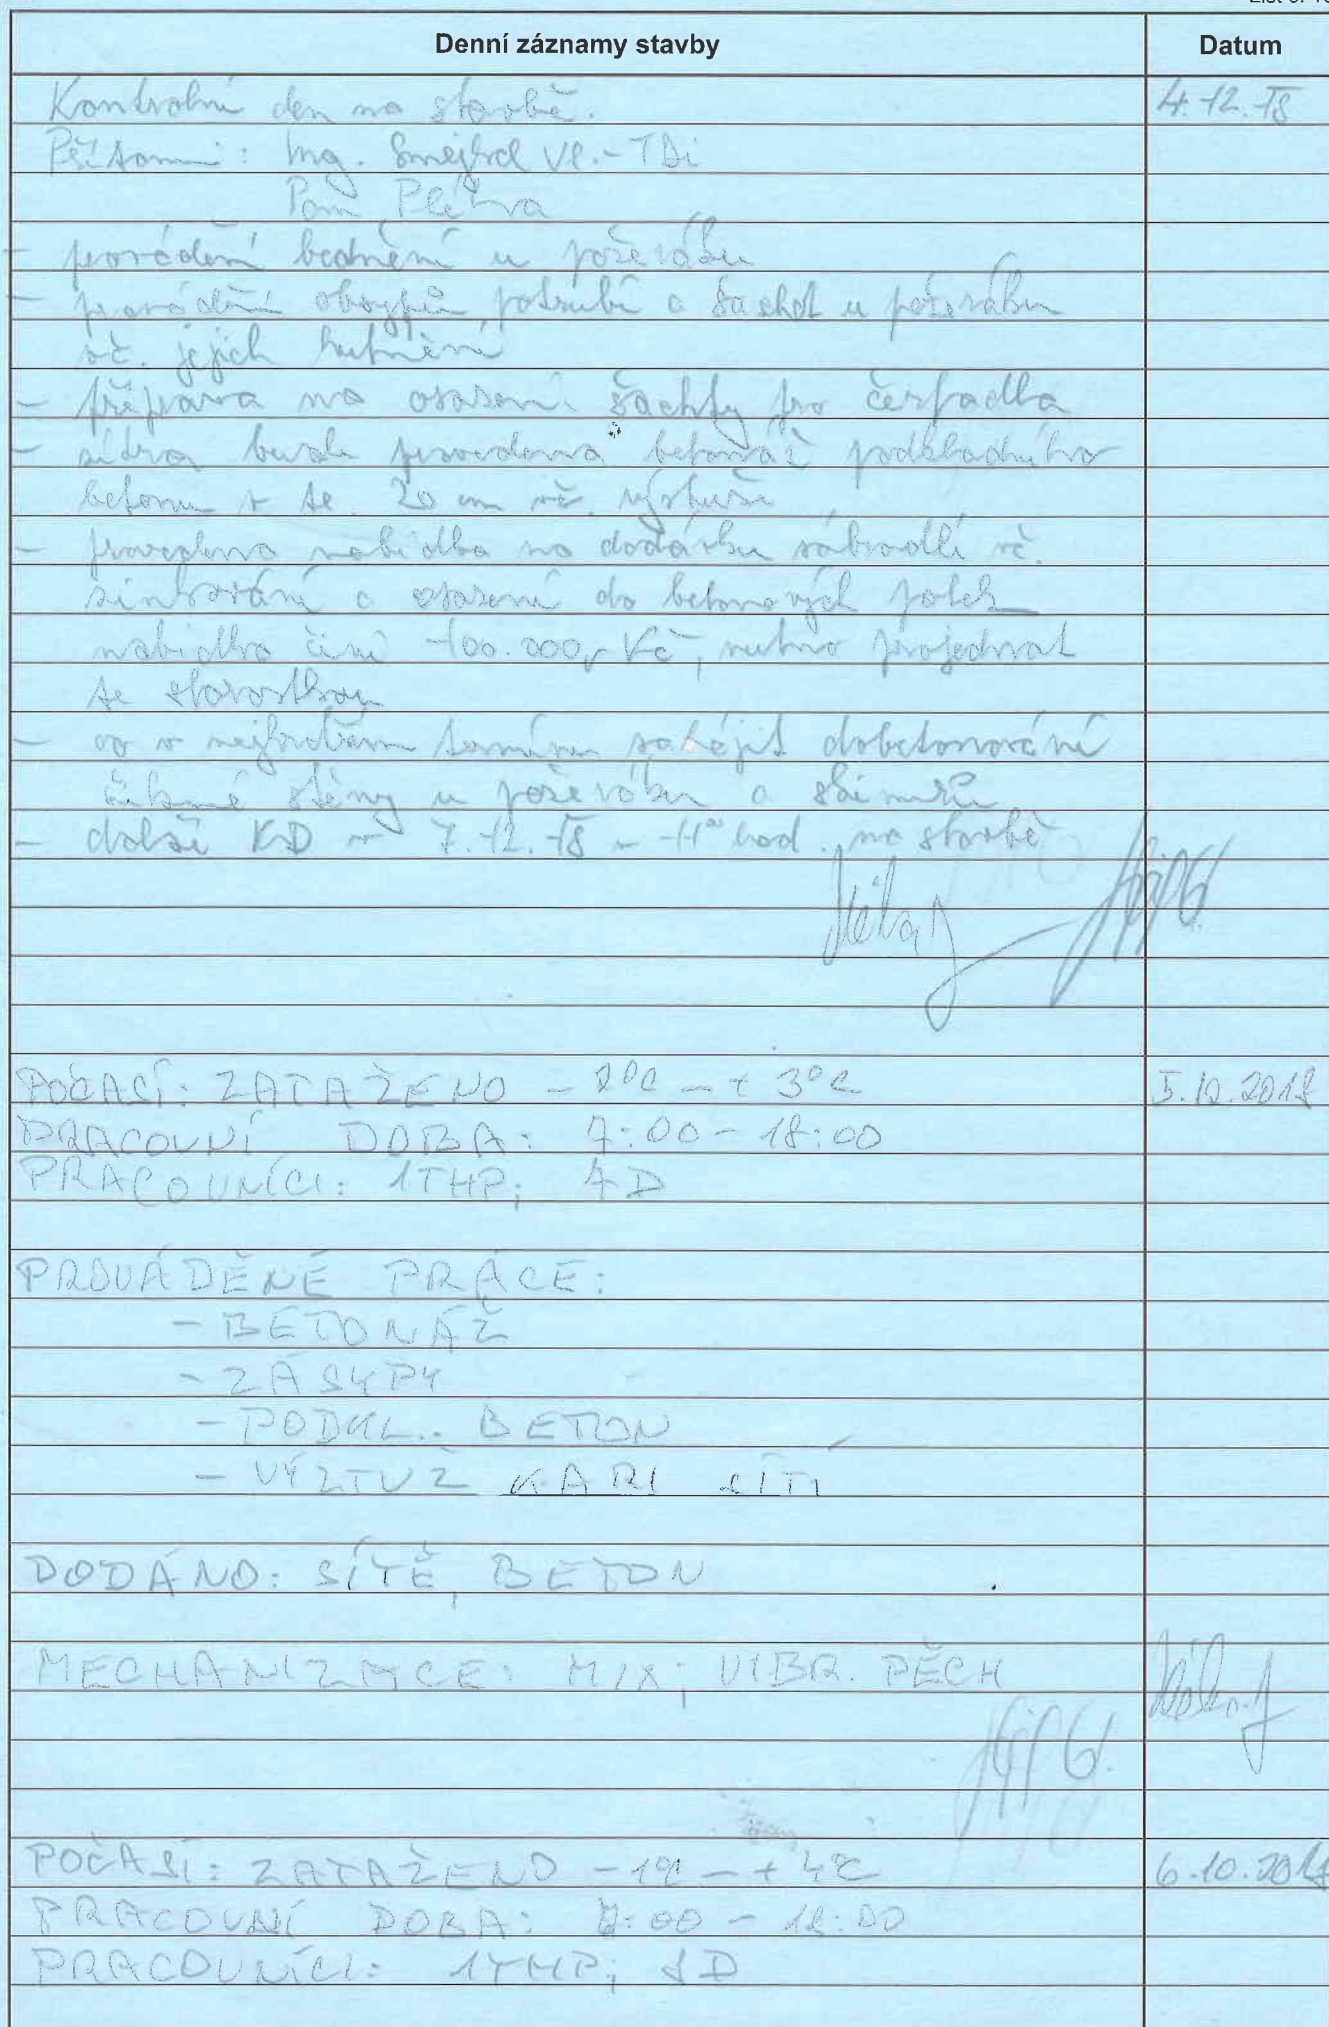 Denní záznamy stavby
Datum
Kontrolní den na stavbě.
4.12.18
Přítomni: Ing. Smejkal Vl.-TDi
Pan
- provádění bednění u požeráku
- provádění obsypů potrubí a šachet u požeráku
vč. jejich hutnění
- příprava na osazení šachty pro čerpadla
- zítra bude provedena betonáž podkladního
betonu v tl. 20 cm vč. výztuže
- provedena nabídka na dodávku zábradlí vč.
zinkování a osazení do betonových patek
nabídka činí 100.000,- Kč, nutno projednat
se starostkou
- co v nejkratším termínu zahájit dobetonování
čelné stěny u požeráku a
- další KD - 7.12.18 - 11°° hod. na stavbě
POČASÍ: ZATAŽENO - 2°C - + 3°C
5.12.2018
PRACOVNÍ DOBA: 7:00 - 18:00
PRACOVNÍCI: 1THP; 4D
PROVÁDĚNÉ PRÁCE:
- BETONÁŽ
- ZÁSYPY
- PODKL. BETON
- VÝZTUŽ KARI SÍTÍ
DODÁNO: SÍTĚ, BETON
MECHANIZACE: MIX; VIBR. PĚCH
POČASÍ: ZATAŽENO -1°C - + 4°C
6.10.2018
PRACOVNÍ DOBA: 7:00 - 18:00
PRACOVNÍCI: 1THP;